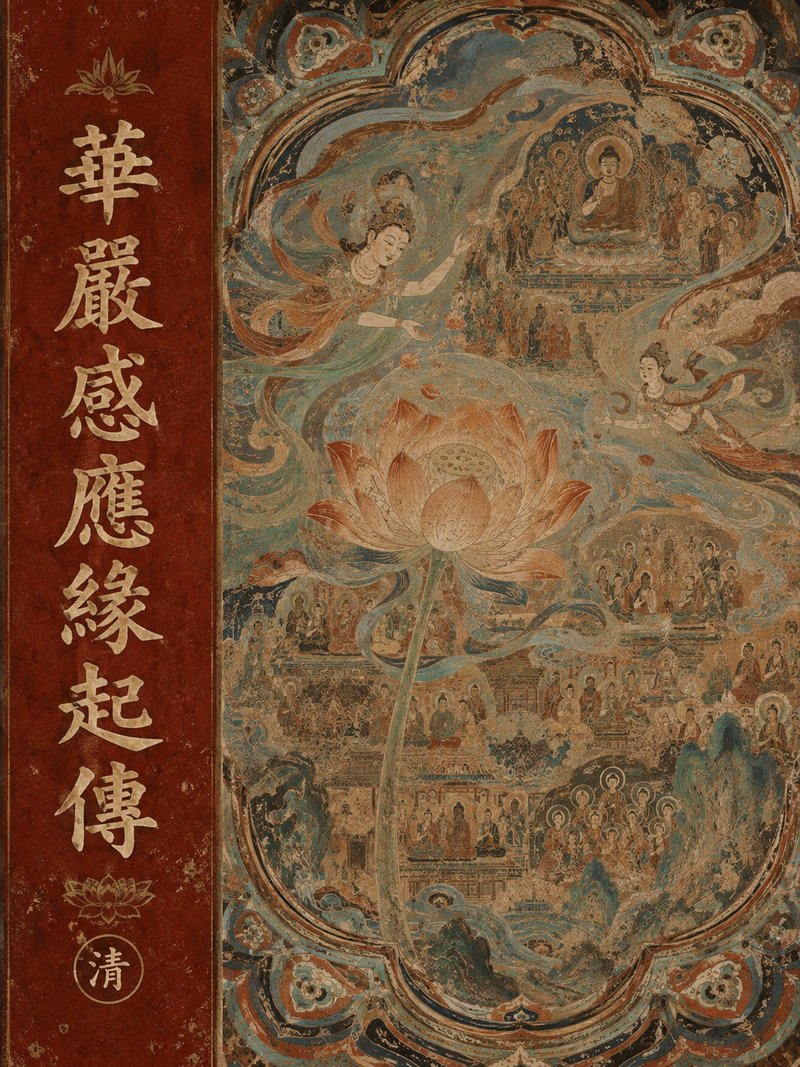 華嚴感應緣起傳
清